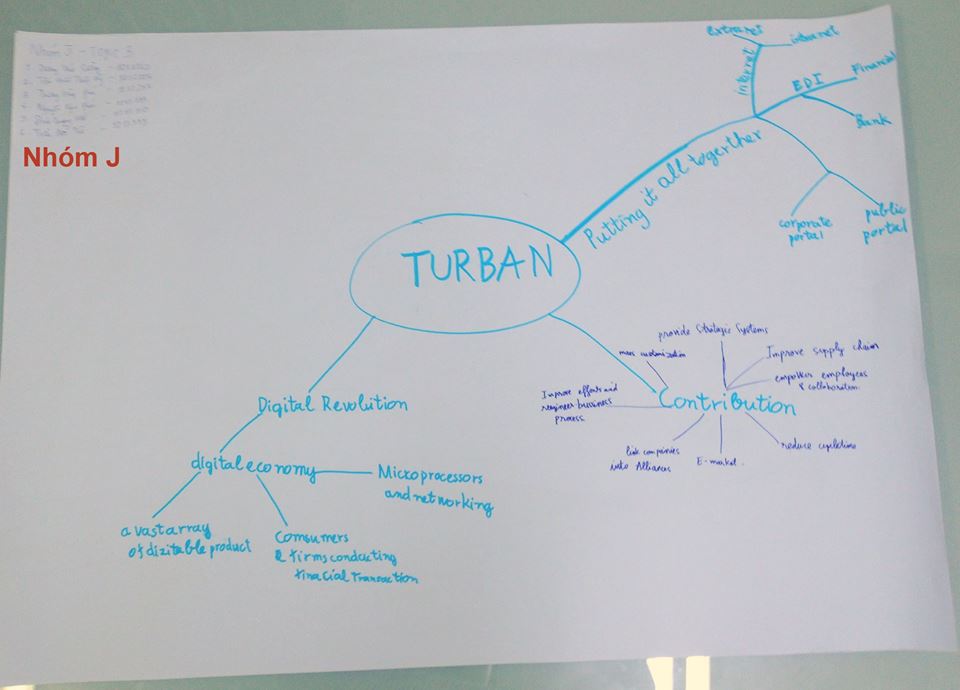 Nhóm J - Topic 3
Nhóm J
TURBAN
Putting it all together
internet
extranet
intranet
EDI
Financial
Bank
corporate
portal
public
portal
Contribution
provide Strategic Systems
mass customization
Improve supply chain
empower employees
& collaboration
Improve efforts and
reegineer bussiness
process
link companies
into Alliances
E-market.
reduce cycletime
Digital Revolution
digital economy
Microprocessors
and networking
a vast array
of dizitable product
Comsumers
& firms conducting
finacial Transaction